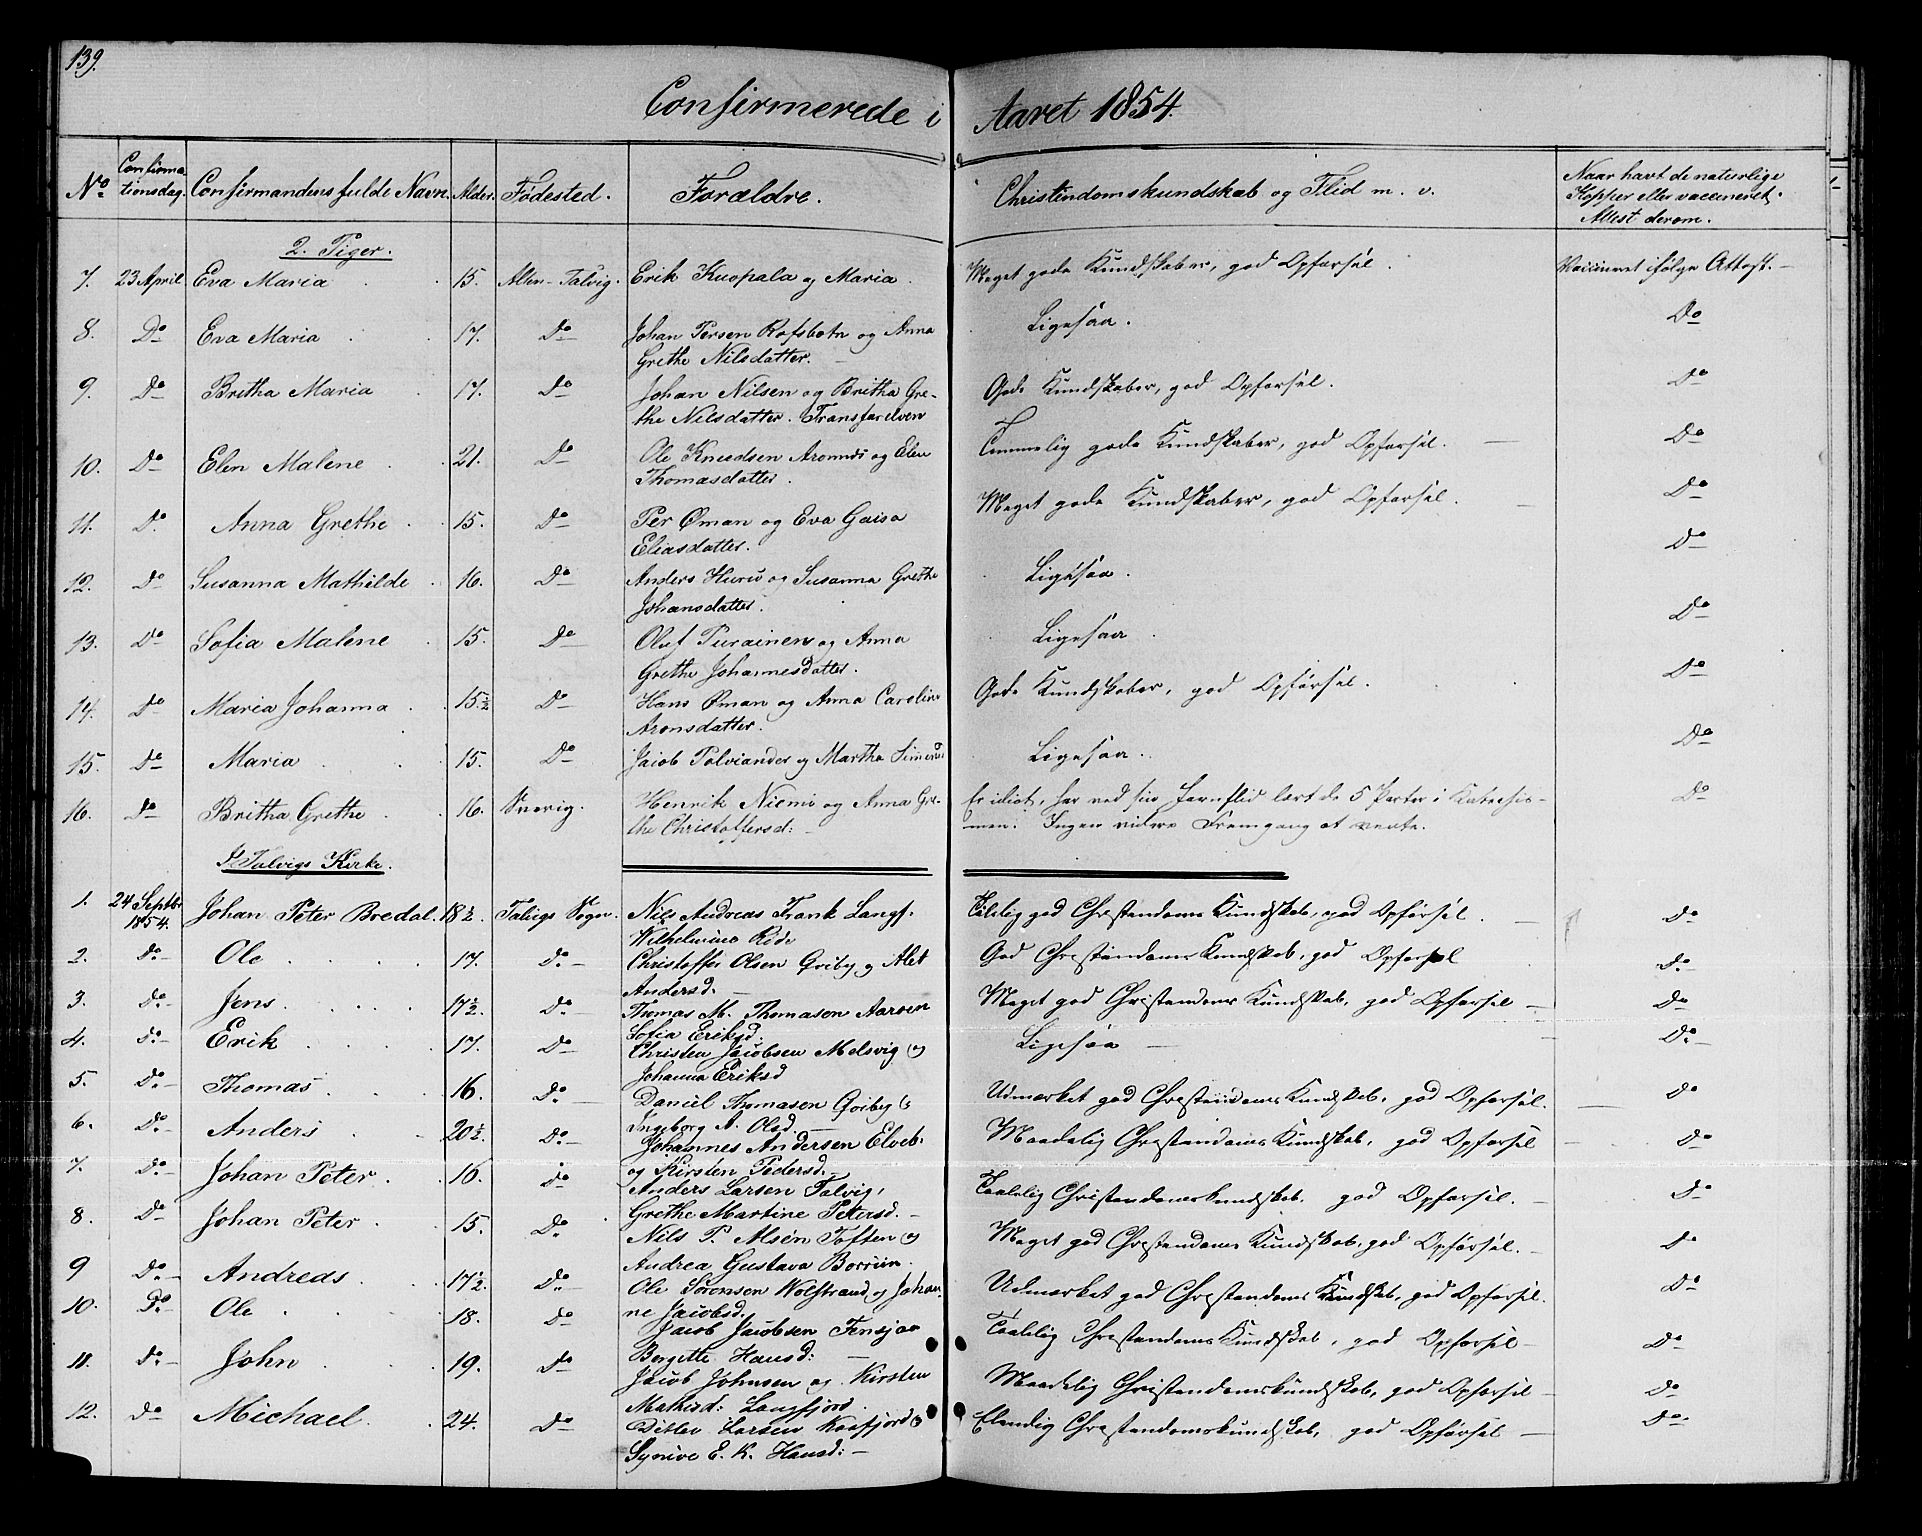 139.
Confirmerede i Aaret 1854.
No. Confirmationsdag. Confirmandens fulde Navn. Alder. Fødested. Forældre. Christendomskundskab og Flid m. v. Naar havt de naturlige Kopper eller vaccineret. Attest derom.
2. Piger.
7. 23 April Eva Maria 15. Alten-Talvig. Erik Kuopala og Maria. Meget gode Kundskaber, god Opførsel. Vaccineret ifølge Attest.
8. Do Eva Maria 17. Do Johan Persen Rafsbotn og Anna Ligesaa. Do
Grethe Nilsdatter.
9. Do Britha Maria 17. Do Johan Nilsen og Britha Gre- Gode Kundskaber, god Opførsel. Do
the Nilsdatter. Transfarelven
10. Do Elen Malene 21. Do Ole Knudsen Aronnæs og Elen Temmelig gode Kundskaber, god Opførsel. Do
Thomasdatter.
11. Do Anna Grethe 15. Do Per Øman og Eva Gaisa Meget gode Kundskaber, god Opførsel. Do
Eliasdatter.
12. Do Susanna Mathilde 16. Do Anders Huru og Susanna Grethe Ligesaa. Do
Johansdatter.
13. Do Sofia Malene 15. Do Oluf Purainen og Anna Ligesaa Do
Grethe Johannesdatter.
14. Do Maria Johanna 15½ Do Hans Øman og Anna Caroline Gode Kundskaber, god Opførsel. Do
Aronsdatter.
15. Do Maria 15. Do Jacob Palviander og Martha Ligesaa. Do
16. Do Britha Grethe 16. Sverig. Henrik Niemi og Anna Gre- Er idiot, har ved sin Jernflid lært de 5 Parter i Katechis- Do
the Christoffersd: men. Ingen videre Fremgang at vente.
I Talvigs Kirke.
1. 24 Septbr 1854. Johan Peter Bredal 18½. Talvigs Sogn. Nils Andreas Frank Langf. Taalelig god Christendoms Kundskab, god Opførsel. Do
Wilhelmine
2. Do Ole 17. Do Christoffer Olsen Qviby og Alet God Christendoms Kundskab, god Opførsel Do
Andersd.
3. Do Jens 17½. Do Thomas M. Thomasen Aarøen Meget god Christendoms Kundskab, god Opførsel Do
Sofia Eriksd.
4. Do Erik 17. Do Christen Jacobsen Melsvig og Ligesaa Do
Johanna Eriksd
5. Do Thomas 16 Do Daniel Thomasen Qviby og Udmærket god Christendoms Kundskab, god Opførsel. Do
Ingeborg A. Olsd.
6. Do Anders 20½. Do Johannes Andersen Elveb. Maadelig Christendoms Kundskab, god Opførsel Do
og Kirsten Pedersd.
7. Do Johan Peter 16. Do Anders Larsen Talvig, Taalelig Christendomskundskab, god Opførsel. Do
Grethe Martine Petersd.
8. Do Johan Peter 15. Do Nils P. Alsén Toften og Meget god Christendoms Kundskab, god Opførsel. Do
Andrea Gustava
9 Do Andreas 17½. Do Ole Sørensen Wolfstrand og Johan- Udmærket god Christendoms Kundskab, god Opførsel. Do
ne Jacobsd.
10. Do Ole 18. Do Jacob Jacobsen Taalelig Christendoms Kundskab, god Opførsel Do
Bergette Hansd:
11. Do John 19. Do Jacob Johnsen og Kirsten Maadelig Christendomskundskab, god Opførsel Do
Mathisd: Langfjord
12. Do Michael. 24. Do Ditlev Larsen Kaafjord og Elendig Christendomskundskab, god Opførsel Do
Synive E. K. Hansd: